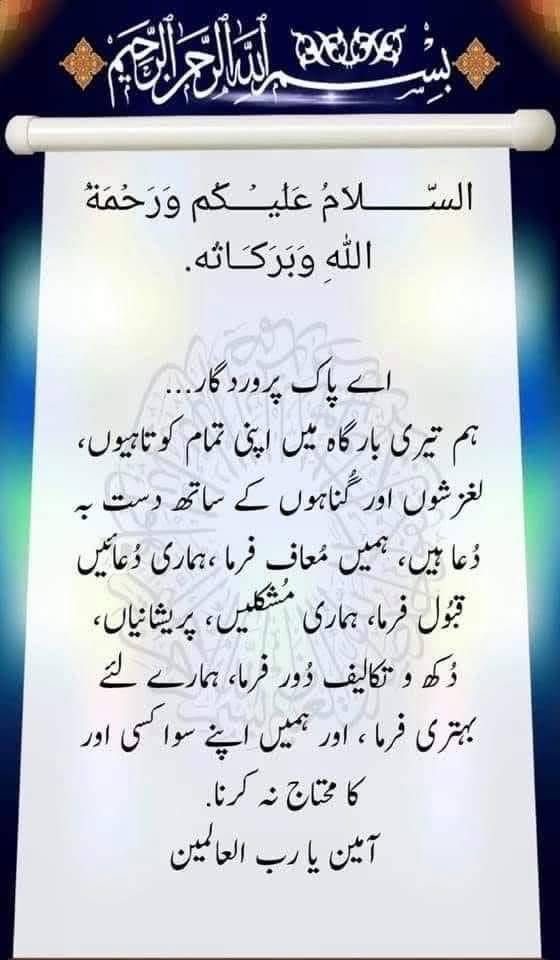 بسم الله الرحمن الرحيم
السَّـــــلَامُ عَلَيْــكُم وَرَحْمَةُ
اللهِ وَبَرَكَـاتُه.
اے پاک پروردگار...
ہم تیری بارگاہ میں اپنی تمام کوتاہیوں،
لغزشوں اور گُناہوں کے ساتھ دست بہ
دُعا ہیں، ہمیں مُعاف فرما ،ہماری دُعائیں
قبُول فرما، ہماری مُشکلیں، پریشانیاں،
دُکھ و تکالیف دُور فرما، ہمارے لئے
بہتری فرما ، اور ہمیں اپنے سوا کسی اور
کا محتاج نہ کرنا.
آمین یا رب العالمین